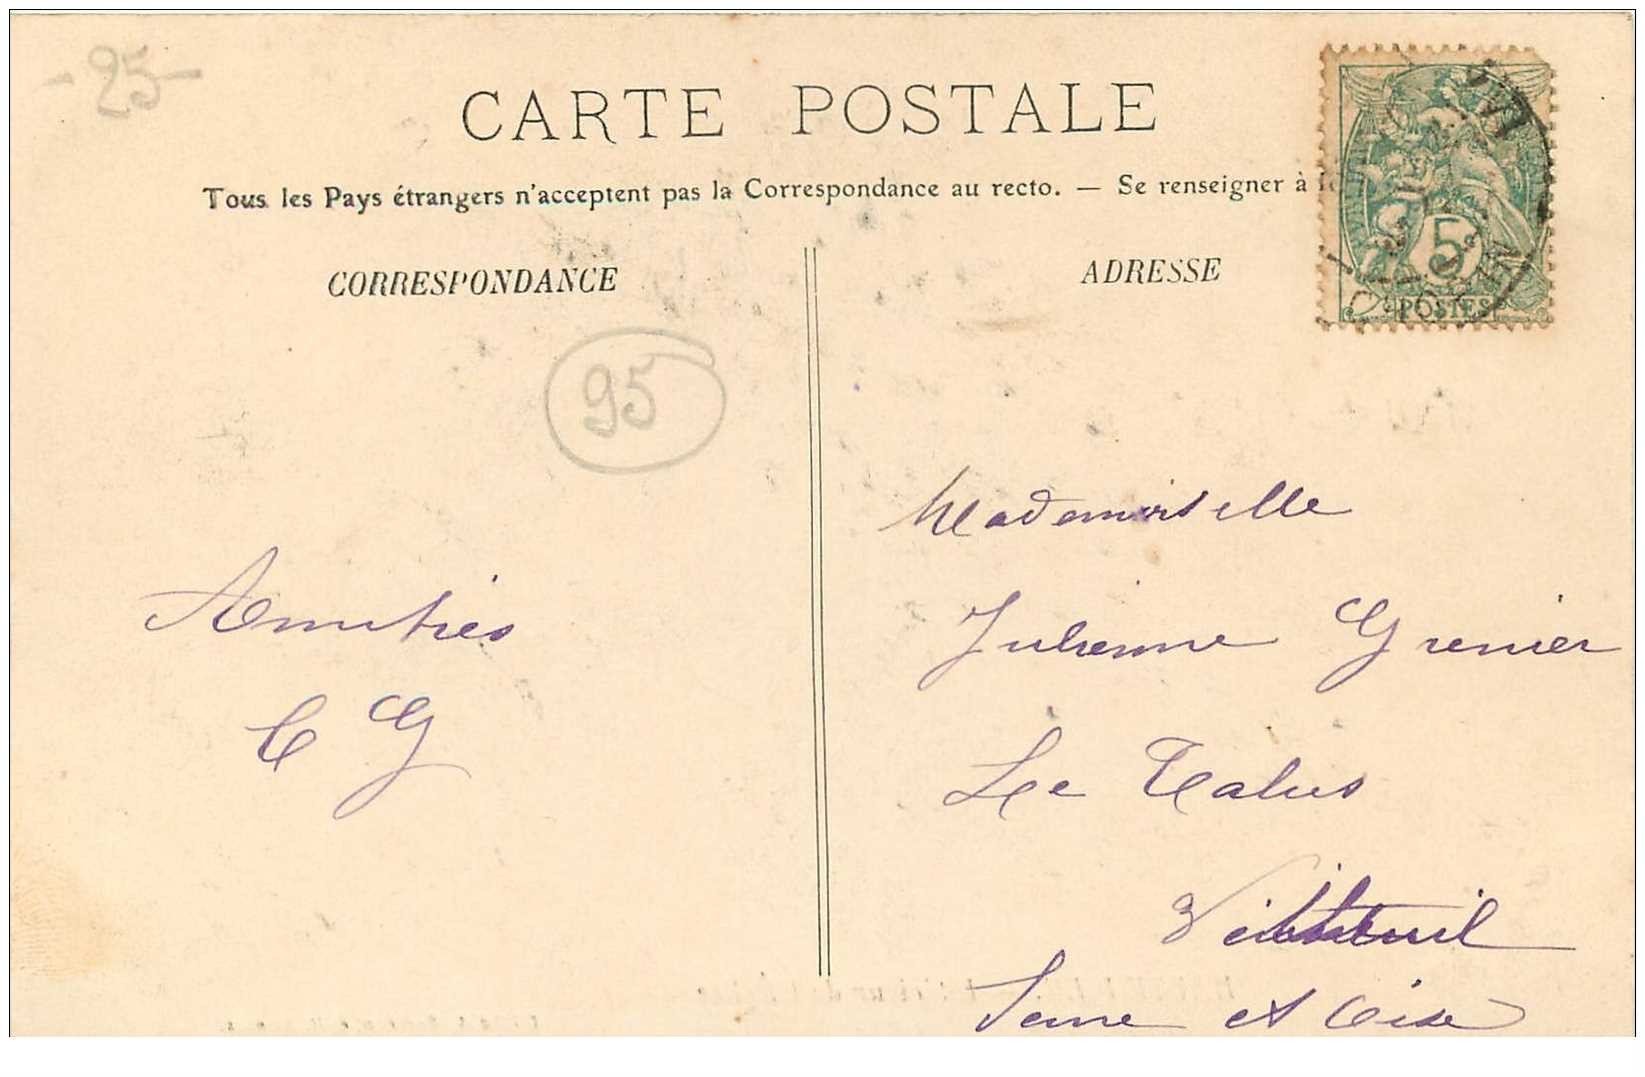 - 25 -
CARTE POSTALE
Tous les Pays étrangers n'acceptent pas la Correspondance au recto. — Se renseigner à
CORRESPONDANCE
ADRESSE
5
POSTES
95
Amitiés
C G
Mademoiselle
Julienne Grenier
Le Talus
Vétheuil
Seine et Oise